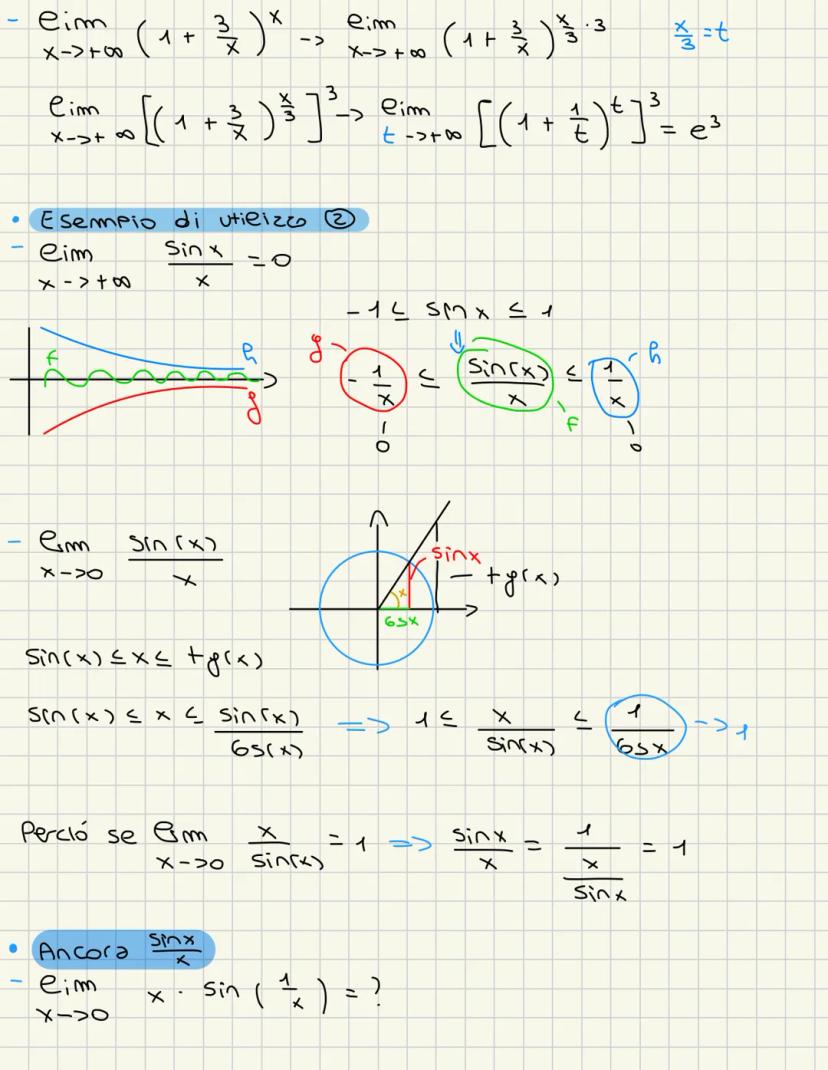 - lim x->+∞ (1 + 3/x)^x -> lim x->+∞ (1 + 3/x)^(x/3 · 3) x/3 = t
lim x->+∞ [(1 + 3/x)^(x/3)]^3 -> lim t->+∞ [(1 + 1/t)^t]^3 = e^3
• Esempio di utilizzo ②
- lim x->+∞ sin x / x = 0
-1 ≤ sin x ≤ 1
f h g
g - 1/x ≤ sin(x)/x ≤ 1/x h
0 f 0
- lim x->0 sin(x)/x
sinx
x
- tg(x)
cosx
sin(x) ≤ x ≤ tg(x)
sin(x) ≤ x ≤ sin(x)/cos(x) => 1 ≤ x/sin(x) ≤ 1/cosx -> 1
Perció se lim x->0 x/sin(x) = 1 => sinx/x = 1/(x/sinx) = 1
• Ancora sinx/x
- lim x->0 x · sin (1/x) = ?